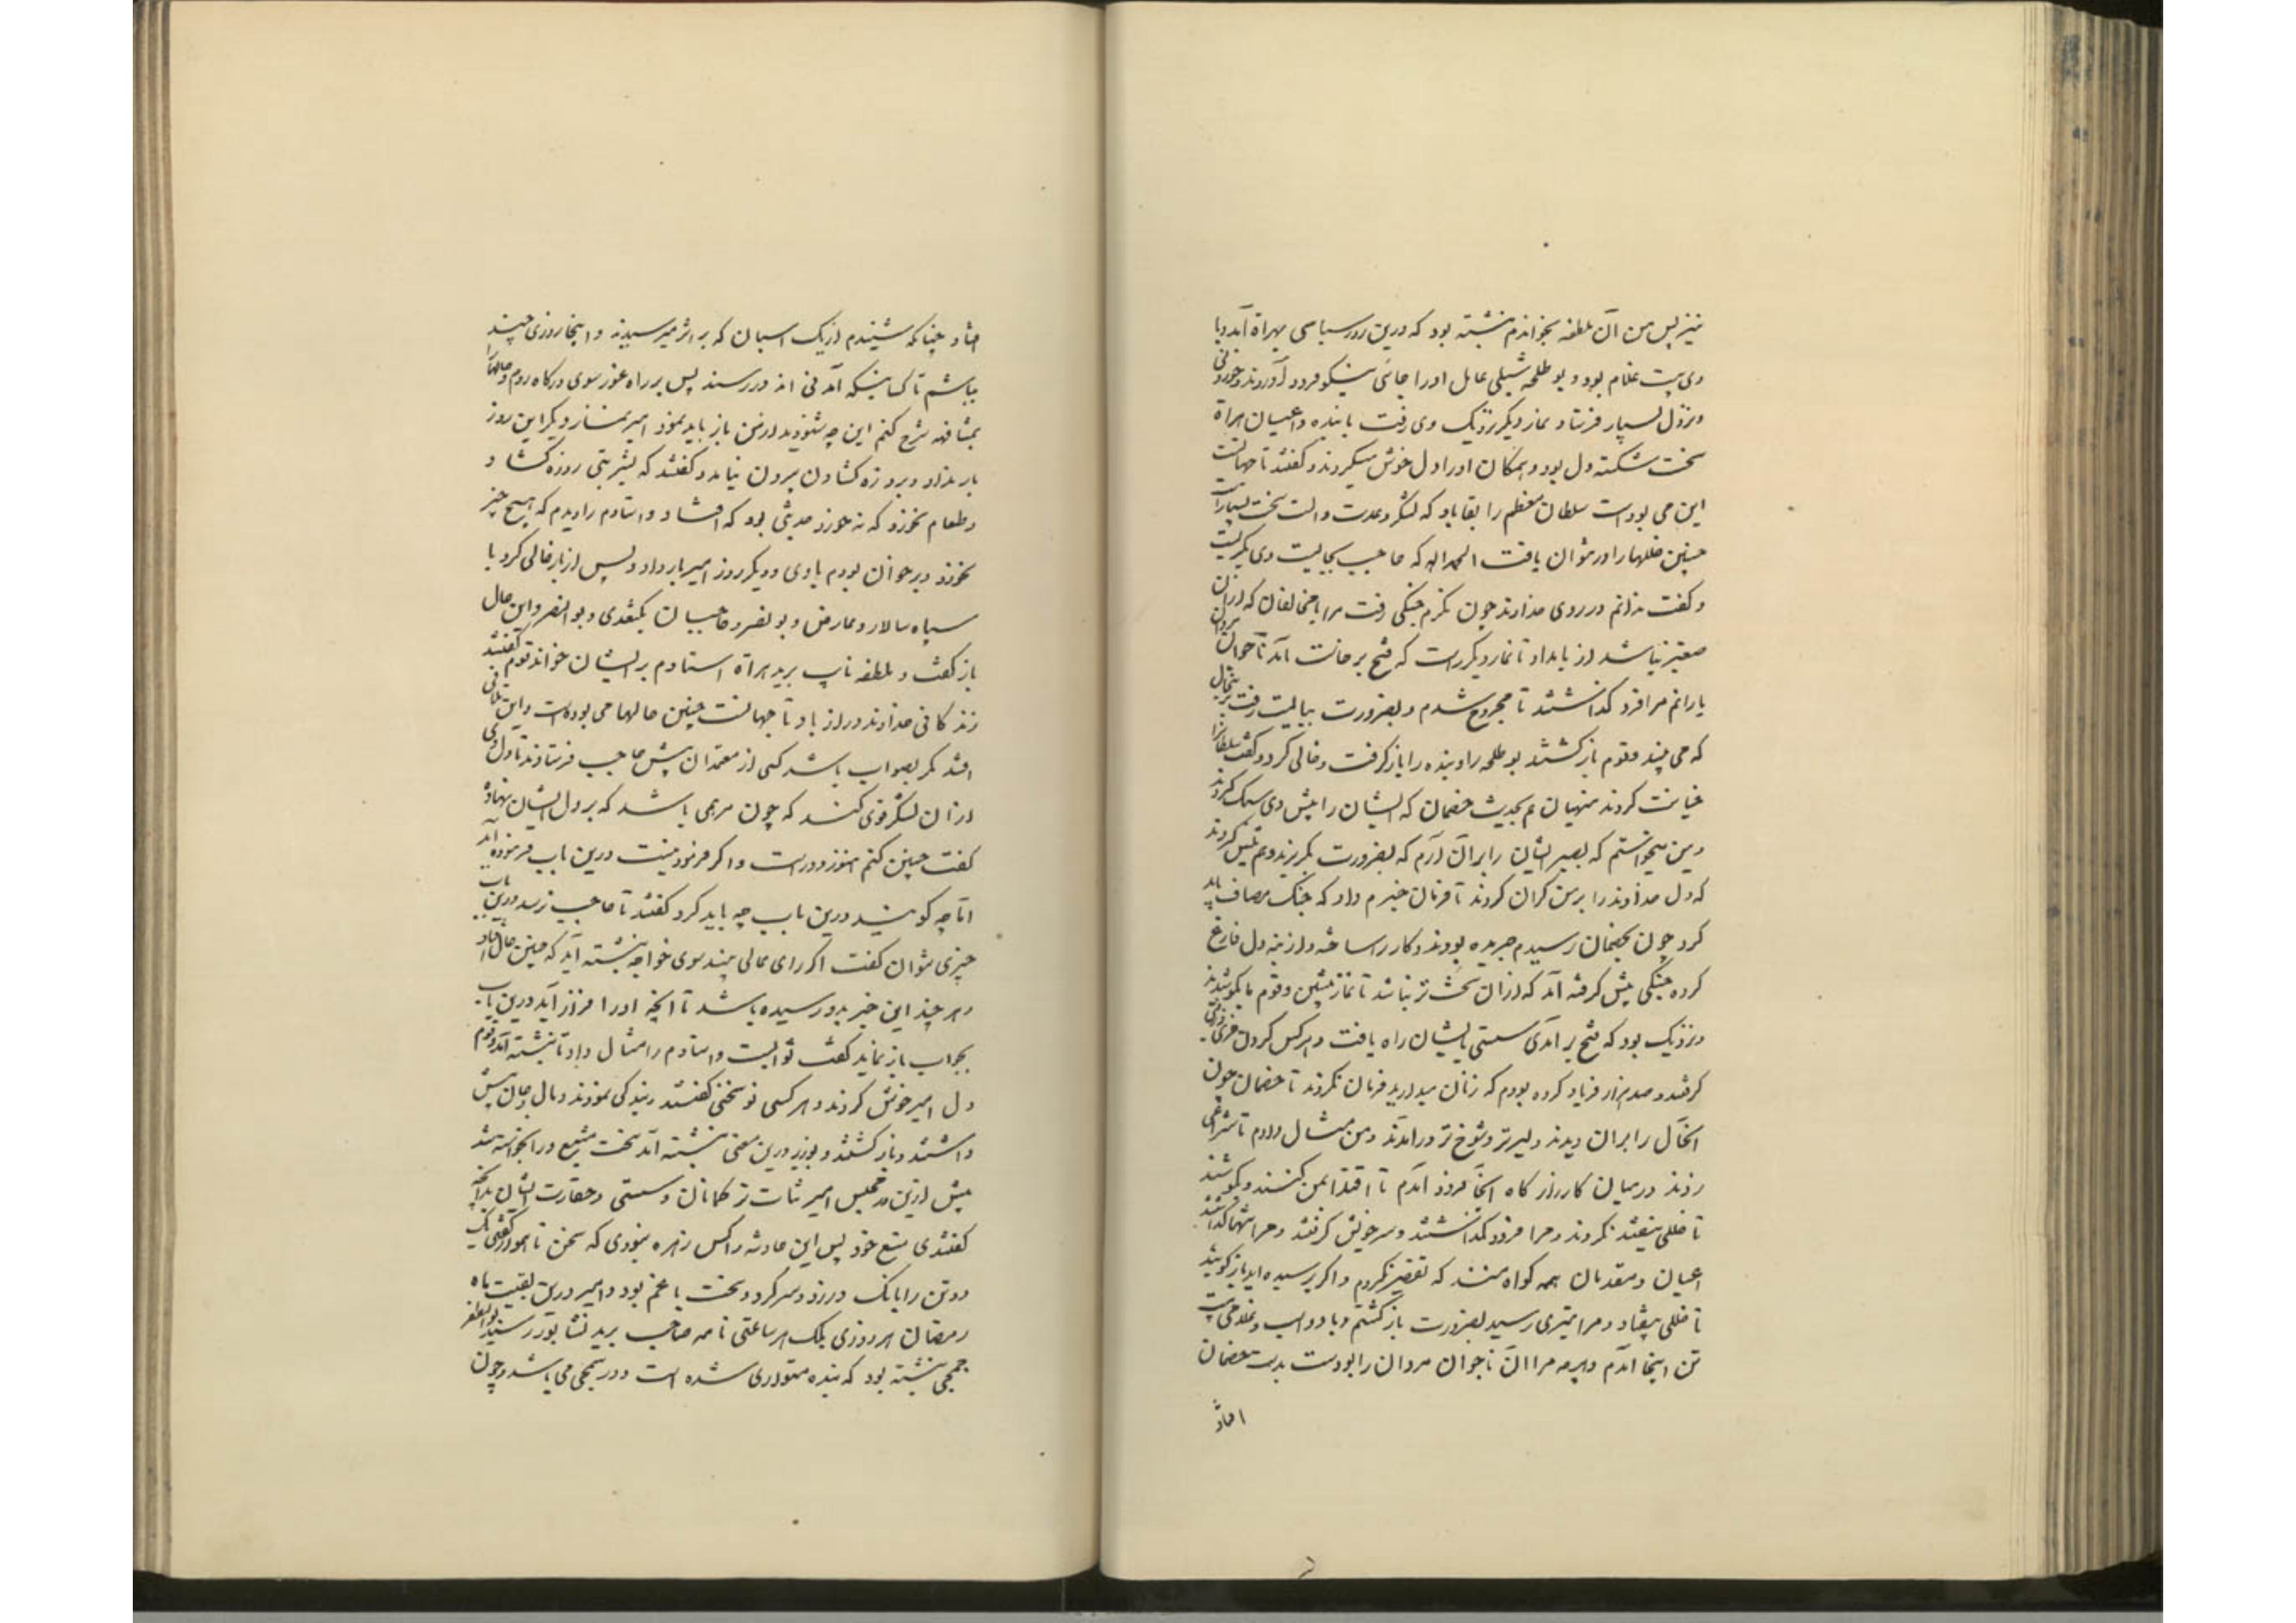 نیز پس من آن ملطفه بخواندم نبشته بود که درین روز سباسی بهراة آمد و با
وی بیست غلام بود و بوطلحه شبلی عامل او را جائی نیکو فرود آورد و خوردنی
و نزل بسیار فرستاد و نماز دیگر نزدیک وی رفت با بنده و اعیان هراة
سخت شکسته دل بود و همکان او را دل خوش میکردند و گفتند تا جهانست
این می بوده است سلطان معظم را بقا باد که لشکر و عدت و آلت سخت بسیار است
چنین خللها را در توان یافت الحمد الله که حاجب بجای است وی بگریست
و گفت ندانم در روی خداوند چون نگرم جنگی رفت مرا با مخالفان که از آن
صعبتر نباشد از بامداد تا نماز دیگر راست که فتح برخاست آمد ناجوانمردان
یارانم مرا فرو گذاشتند تا مجروح شدم و بضرورت ببایست رفت برین حال
که می بینند و قوم بازگشتند بوطلحه را و بنده را باز گرفت و خالی کرد و گفت سلطان را
خیانت کردند منهیان هم بحدیث خصمان که ایشان را پیش وی سبک کردند
و من میخواستم که بصبر ایشان را بر آن آرم که بضرورت بگریزند و هم تلبیس کردند
که دل خداوند را بر من گران کردند تا فرمان جزم داد که جنگ مصاف باید
کرد چون بخصمان رسیدم جریده بودند و کار را ساخته و از بنه دل فارغ
کرده جنگی پیش گرفته آمد که از آن سخت تر نباشد تا نماز پیشین و قوم ما بکوشیدند
و نزدیک بود که فتح بر آمدی سستی بایشان راه یافت و هر کس گردن خری و زنی
گرفتند و صد هزار فریاد کرده بودم که زنان میارید فرمان نکردند تا خصمان چون
آنحال را بر آن دیدند دلیرتر و شوخ تر در آمدند و من مثال دادم تا شراعی
زدند در میان کارزار گاه آنجا فرود آمدم تا اقتدا بمن کنند و بکوشند
تا خللی نیفتد نکردند و مرا فرو گذاشتند و سر خویش گرفتند و مرا تنها گذاشتند
اعیان و مقدمان همه گواه منند که تقصیر نکردم و اگر پرسیده آید باز گویند
تا خللی بیفتاد و مرا تیری رسید بضرورت بازگشتم و با دو اسب و غلامی بیست
تن اینجا آمدم و هر چه مرا و آن ناجوان مردان را بود بدست خصمان
افتاد
افتاد چنانکه شنیدم از نیک اسبان که بر اثر میرسیدند و اینجا روزی چند
بباشم تا کسانیکه آمدنی اند در رسند پس بر راه غور سوی درگاه روم و حالها را
بمشافهه شرح کنم این چه شنودید از من باز باید نمود امیر نماز دیگر این روز
بار نداد و بروزه گشادن بیرون نیامد و گفتند که بشربتی روزه گشاد و
و طعام نخورد که نه خورد حدیثی بود که افتاد و استادم را دیدم که هیچ چیز
نخورد و بر خوان بودم با وی و دیگر روز امیر بار داد و پس از بار خالی کرد با
سپاه سالار و عارض و بو نصر و حاجبان بگتغدی و بو النصر و این حال
باز گفت و ملطفه نایب برید هراة استادم بر ایشان خواند قوم گفتند
زندگانی خداوند دراز باد تا جهانست چنین حالها می بوده است و این تلافی
افتد مگر بصواب باشد کسی از معتمدان پیش حاجب فرستادند تا دل وی
و از آن لشکر قوی کنند که چون مرهمی باشد که بر دل ایشان نهاده
گفت چنین کنم هنوز دور است و اگر فرمود نیست درین باب فرموده آید
اما چه گویند درین باب چه باید کرد گفتند تا حاجب نرسد درین باب
چیزی نتوان گفت اگر رای عالی بیند سوی خواجه نبشته آید که چنین حال افتاد
و هر چند این خبر بدو رسیده باشد تا آنچه او را فراز آید درین باب
بجواب باز نماید گفت ثوابست و استادم را مثال داد تا نبشته آمد و قوم
دل امیر خوش کردند و هر کسی نو سخنی گفتند و بندگی نمودند و مال و جان پیش
داشتند و باز گشتند و بوزیر درین معنی نبشته آمد سخت مشبع و رای خواسته شد
پیش ازین در مجلس امیر ثبات ترکمانان و سستی و حقارت ایشان بدانچه
گفتندی پس این حادثه را کس زهره نبودی که سخن ناهموار گفتی یک
دو تن را بانگ بر زد و سرد کرد و سخت با غم بود و امیر درین بقیت ماه
رمضان هر روزی بلک هر ساعتی نامه صاحب برید نشابور رسید بو المظفر
جمحی نبشته بود که بنده متواری شده است و در سمجی می باشد و چون